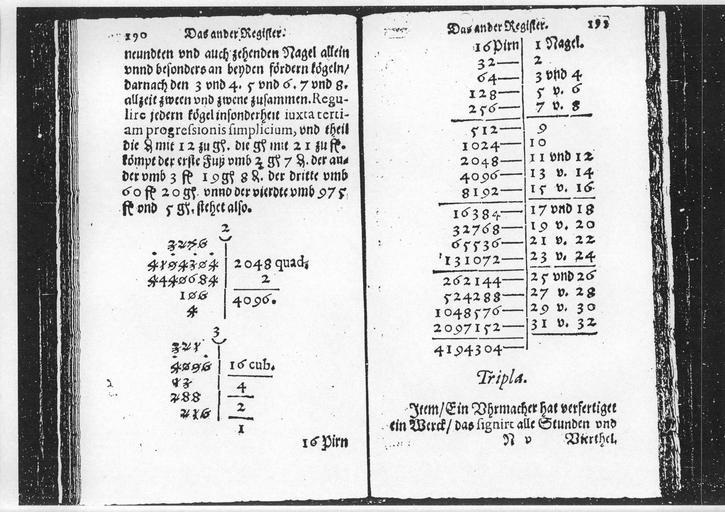 190 Das ander Register.
neundten vnd auch zehenden Nagel allein
vnnd besonders an beyden fördern kögeln/
darnach den 3 vnd 4. 5 vnd 6. 7 vnd 8.
allzeit zween vnd zwene zusammen. Regu-
lire jedern kögel insonderheit iuxta terti-
am progressionis simplicium, vnd theil
die mit 12 zu gß. die gß mit 21 zu
kömpt der erste Fuß vmb 2 gß 7 der an-
der vmb 3 19 gß 8 der dritte vmb
60 20 gß. vnno der vierdte vmb 975
vnd 5 gß. stehet also.
2
4194304 2048 quad.
2
4096.
3
4096 16 cub.
4
288 2
216 1
16 Pirn
Das ander Register.
16 Pirn 1 Nagel.
32— 2
64— 3 vnd 4
128— 5 v. 6
256— 7 v. 8
512— 9
1024— 10
2048— 11 vnd 12
4096— 13 v. 14
8192— 15 v. 16
16384— 17 vnd 18
32768— 19 v. 20
65536— 21 v. 22
131072— 23 v. 24
262144— 25 vnd 26
524288— 27 v. 28
1048576— 29 v. 30
2097152— 31 v. 32
4194304—
Tripla.
Item/ Ein Vhrmacher hat verfertiget
ein Werck/ das signirt alle Stunden vnd
N v Vierthel.